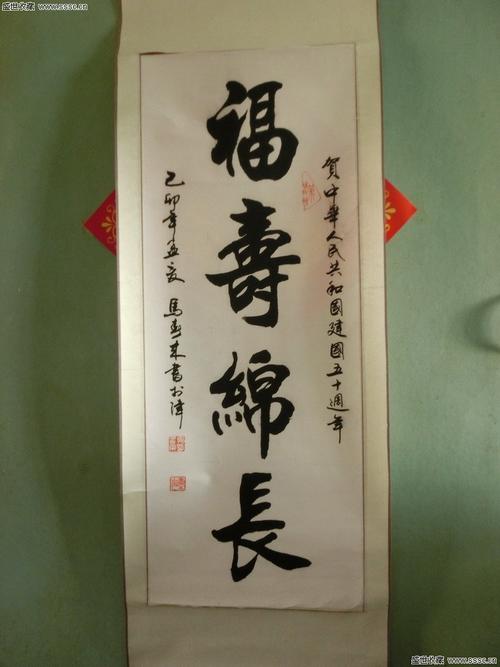 盛世收藏 www.sssc.cn
贺中華人民共和國建國五十週年
福壽綿長
己卯年孟夏 馬春來書於津
盛世收藏 www.sssc.cn